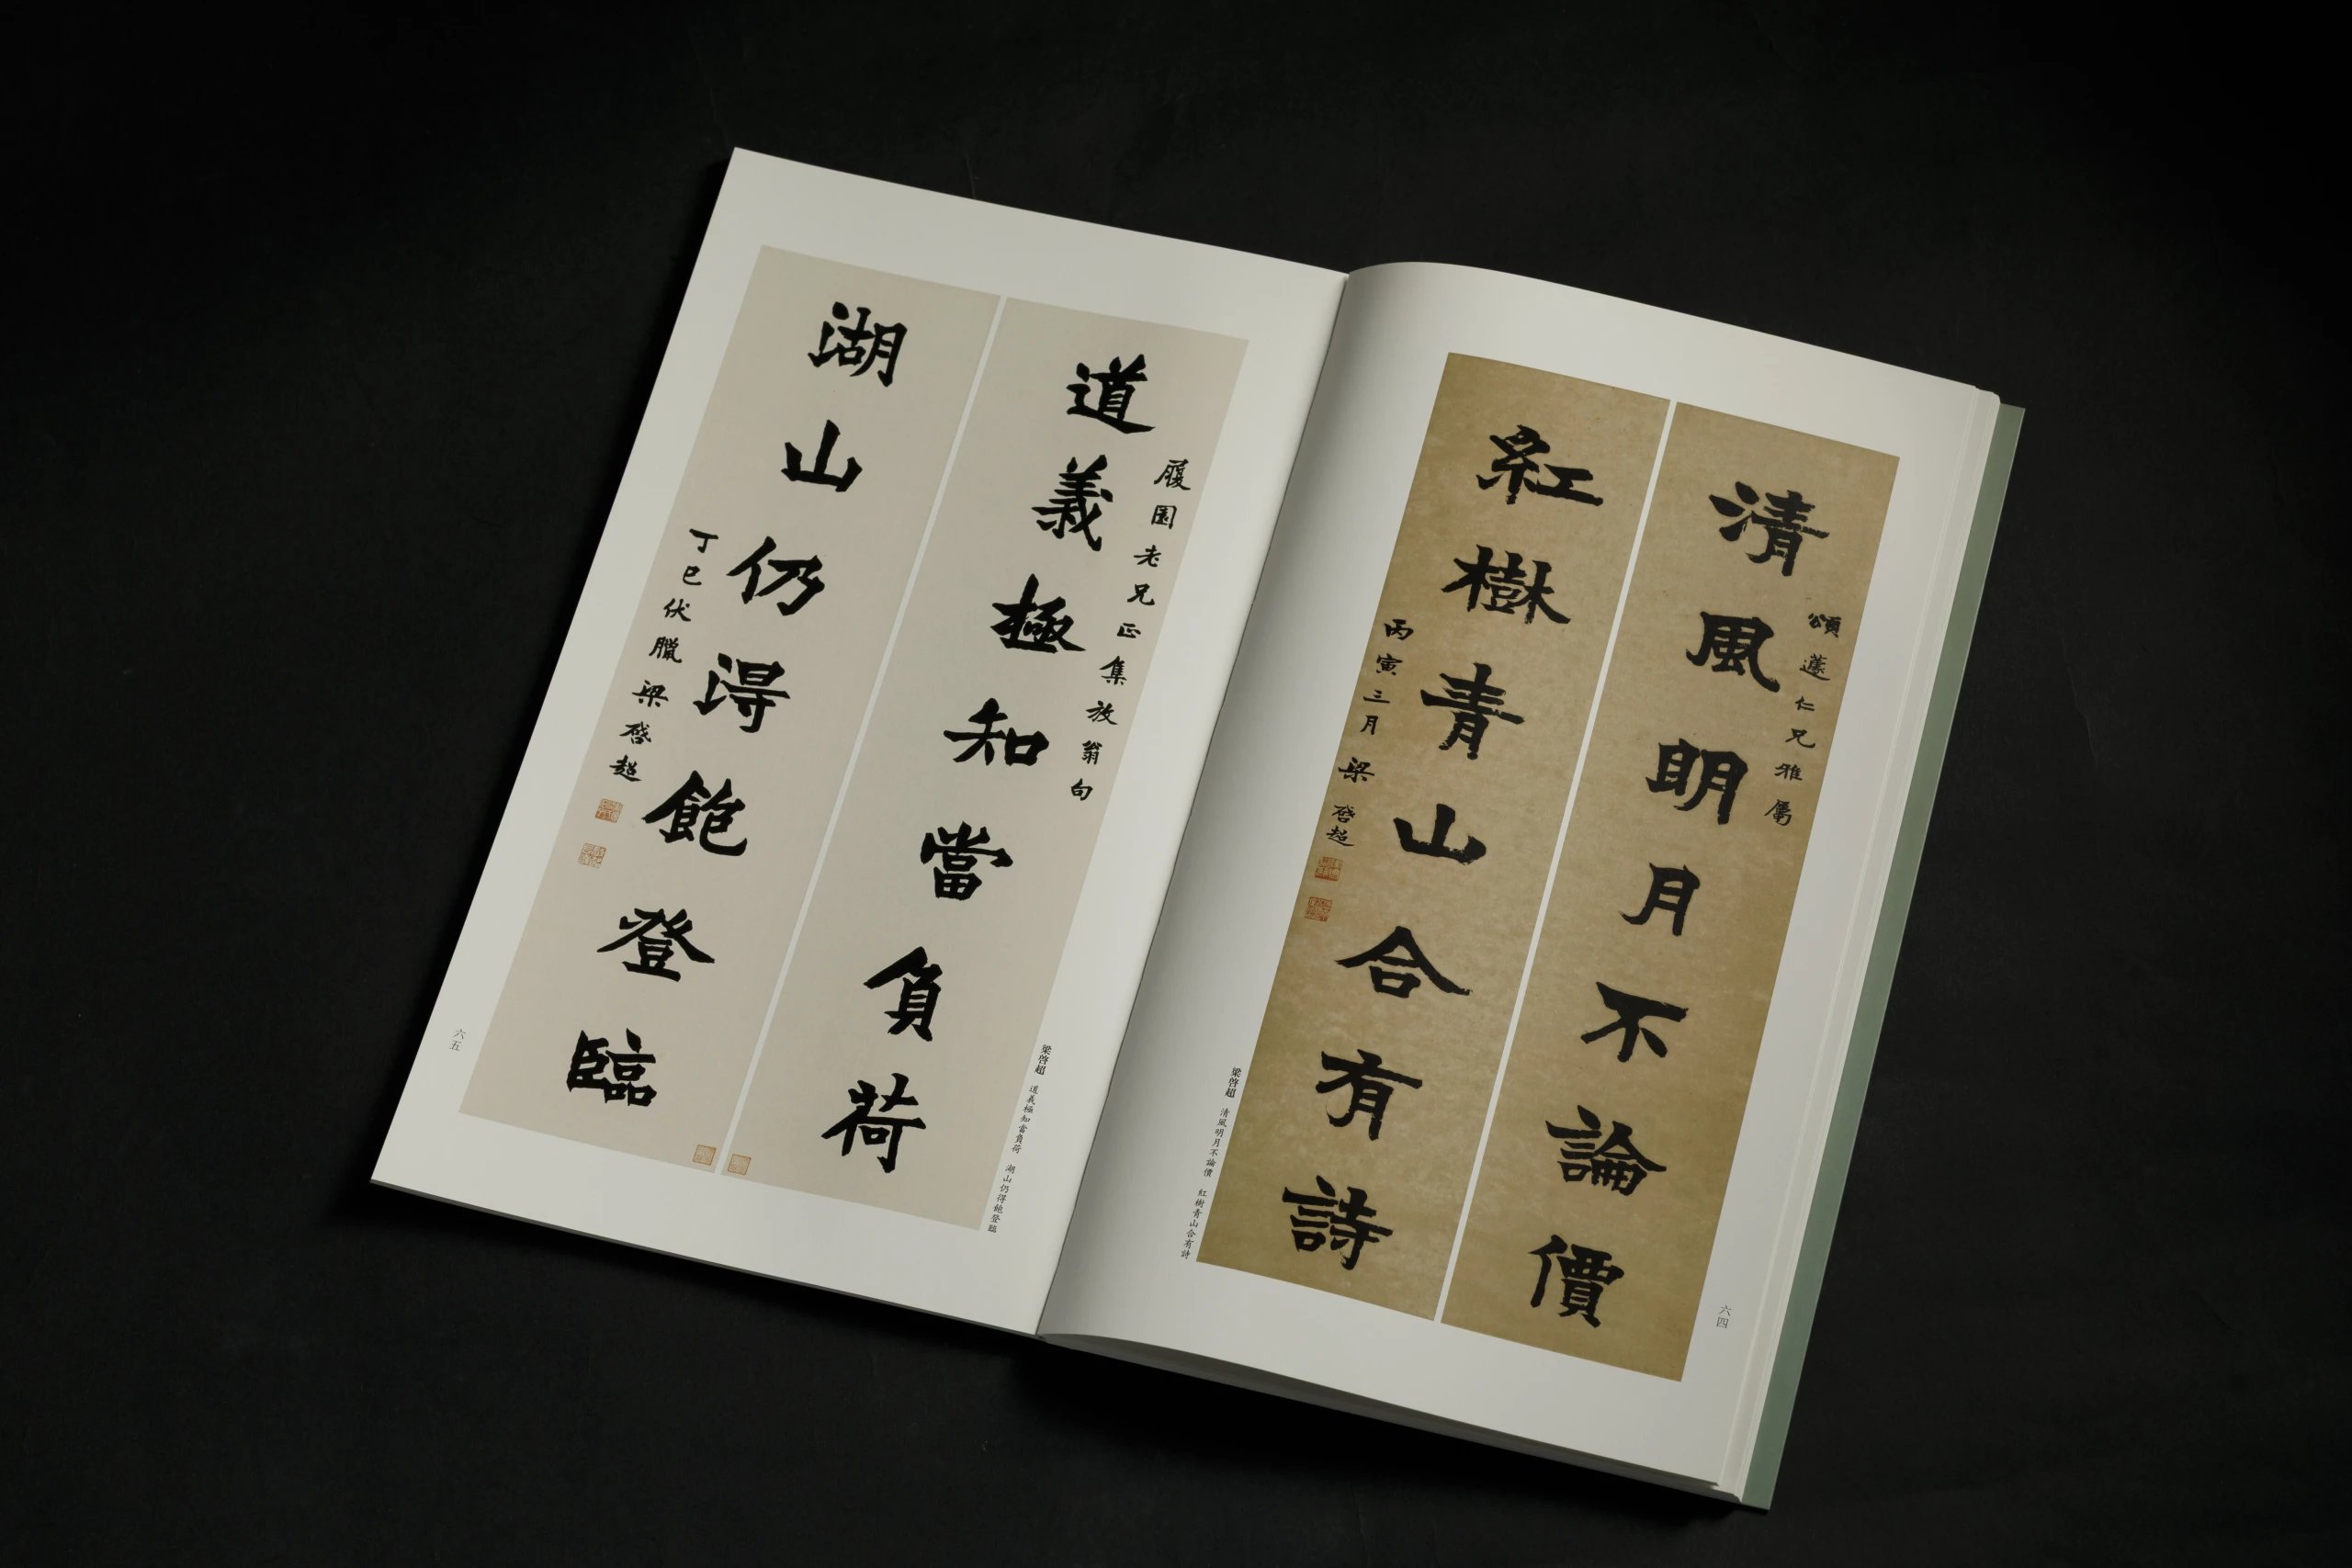 清風明月不論價
頌蘧仁兄雅屬
紅樹青山合有詩
丙寅三月梁啓超
梁啓超 清風明月不論價 紅樹青山合有詩
六四
道義極知當負荷
履園老兄正集放翁句
湖山仍得飽登臨
丁巳伏臘梁啓超
梁啓超 道義極知當負荷 湖山仍得飽登臨
六五